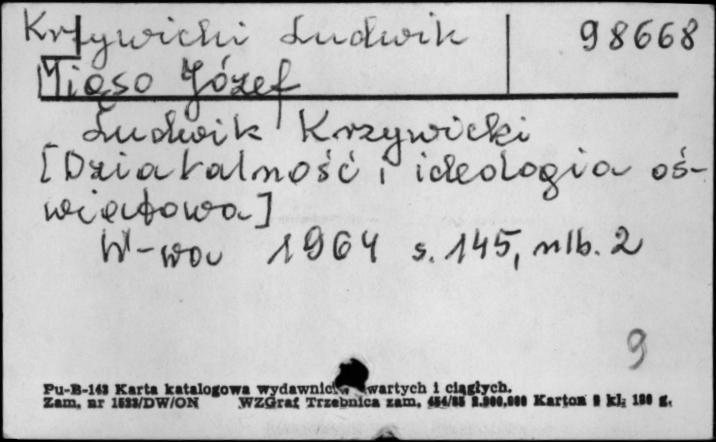 Krzywicki Ludwik 98668
Miąso Józef
Ludwik Krzywicki
[Działalność i ideologia oś-
wiatowa]
W-wa 1964 s. 145, nlb. 2
9
Pu-B-143 Karta katalogowa wydawnictw zwartych i ciągłych.
Zam. nr 1523/DW/ON WZGraf Trzebnica zam. 2.000,000 Karton kl. g.